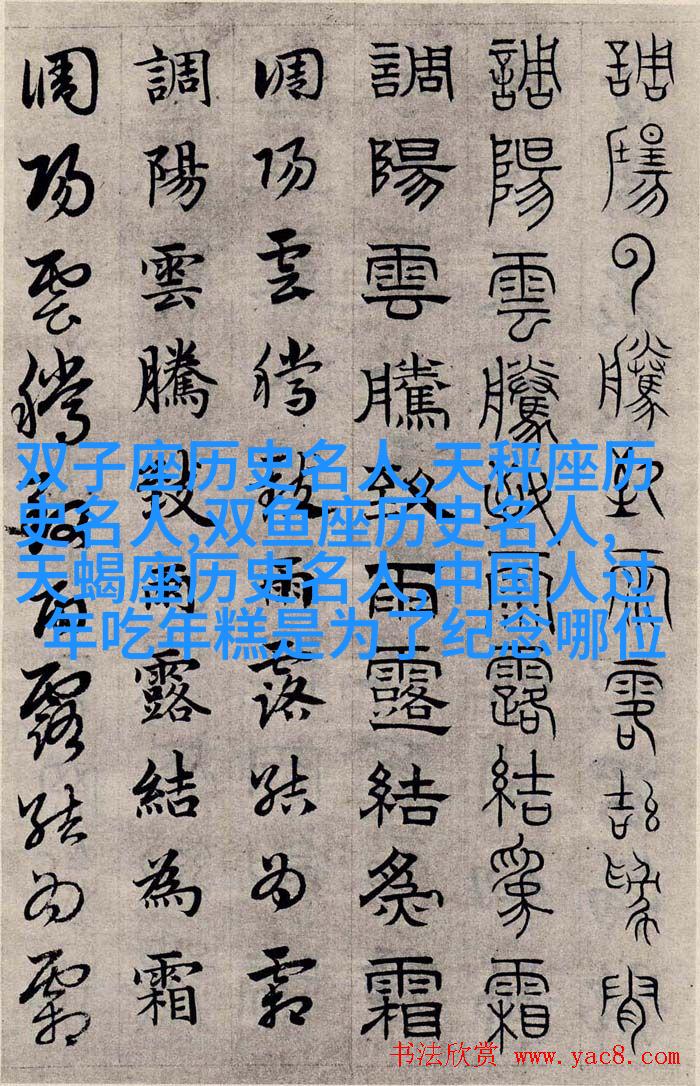 調陽雲騰致雨露結為霜
調陽雲騰致雨露結為霜
調陽雲騰致雨露結為霜
調陽雲騰致雨露結為霜
調陽雲騰致雨露結為霜
調陽雲騰致雨露結為霜
双子座历史名人,天秤座历
史名人,双鱼座历史名人,
天蝎座历史名人,中国人过
年吃年糕是为了纪念哪位
书法欣赏 www.yac8.com